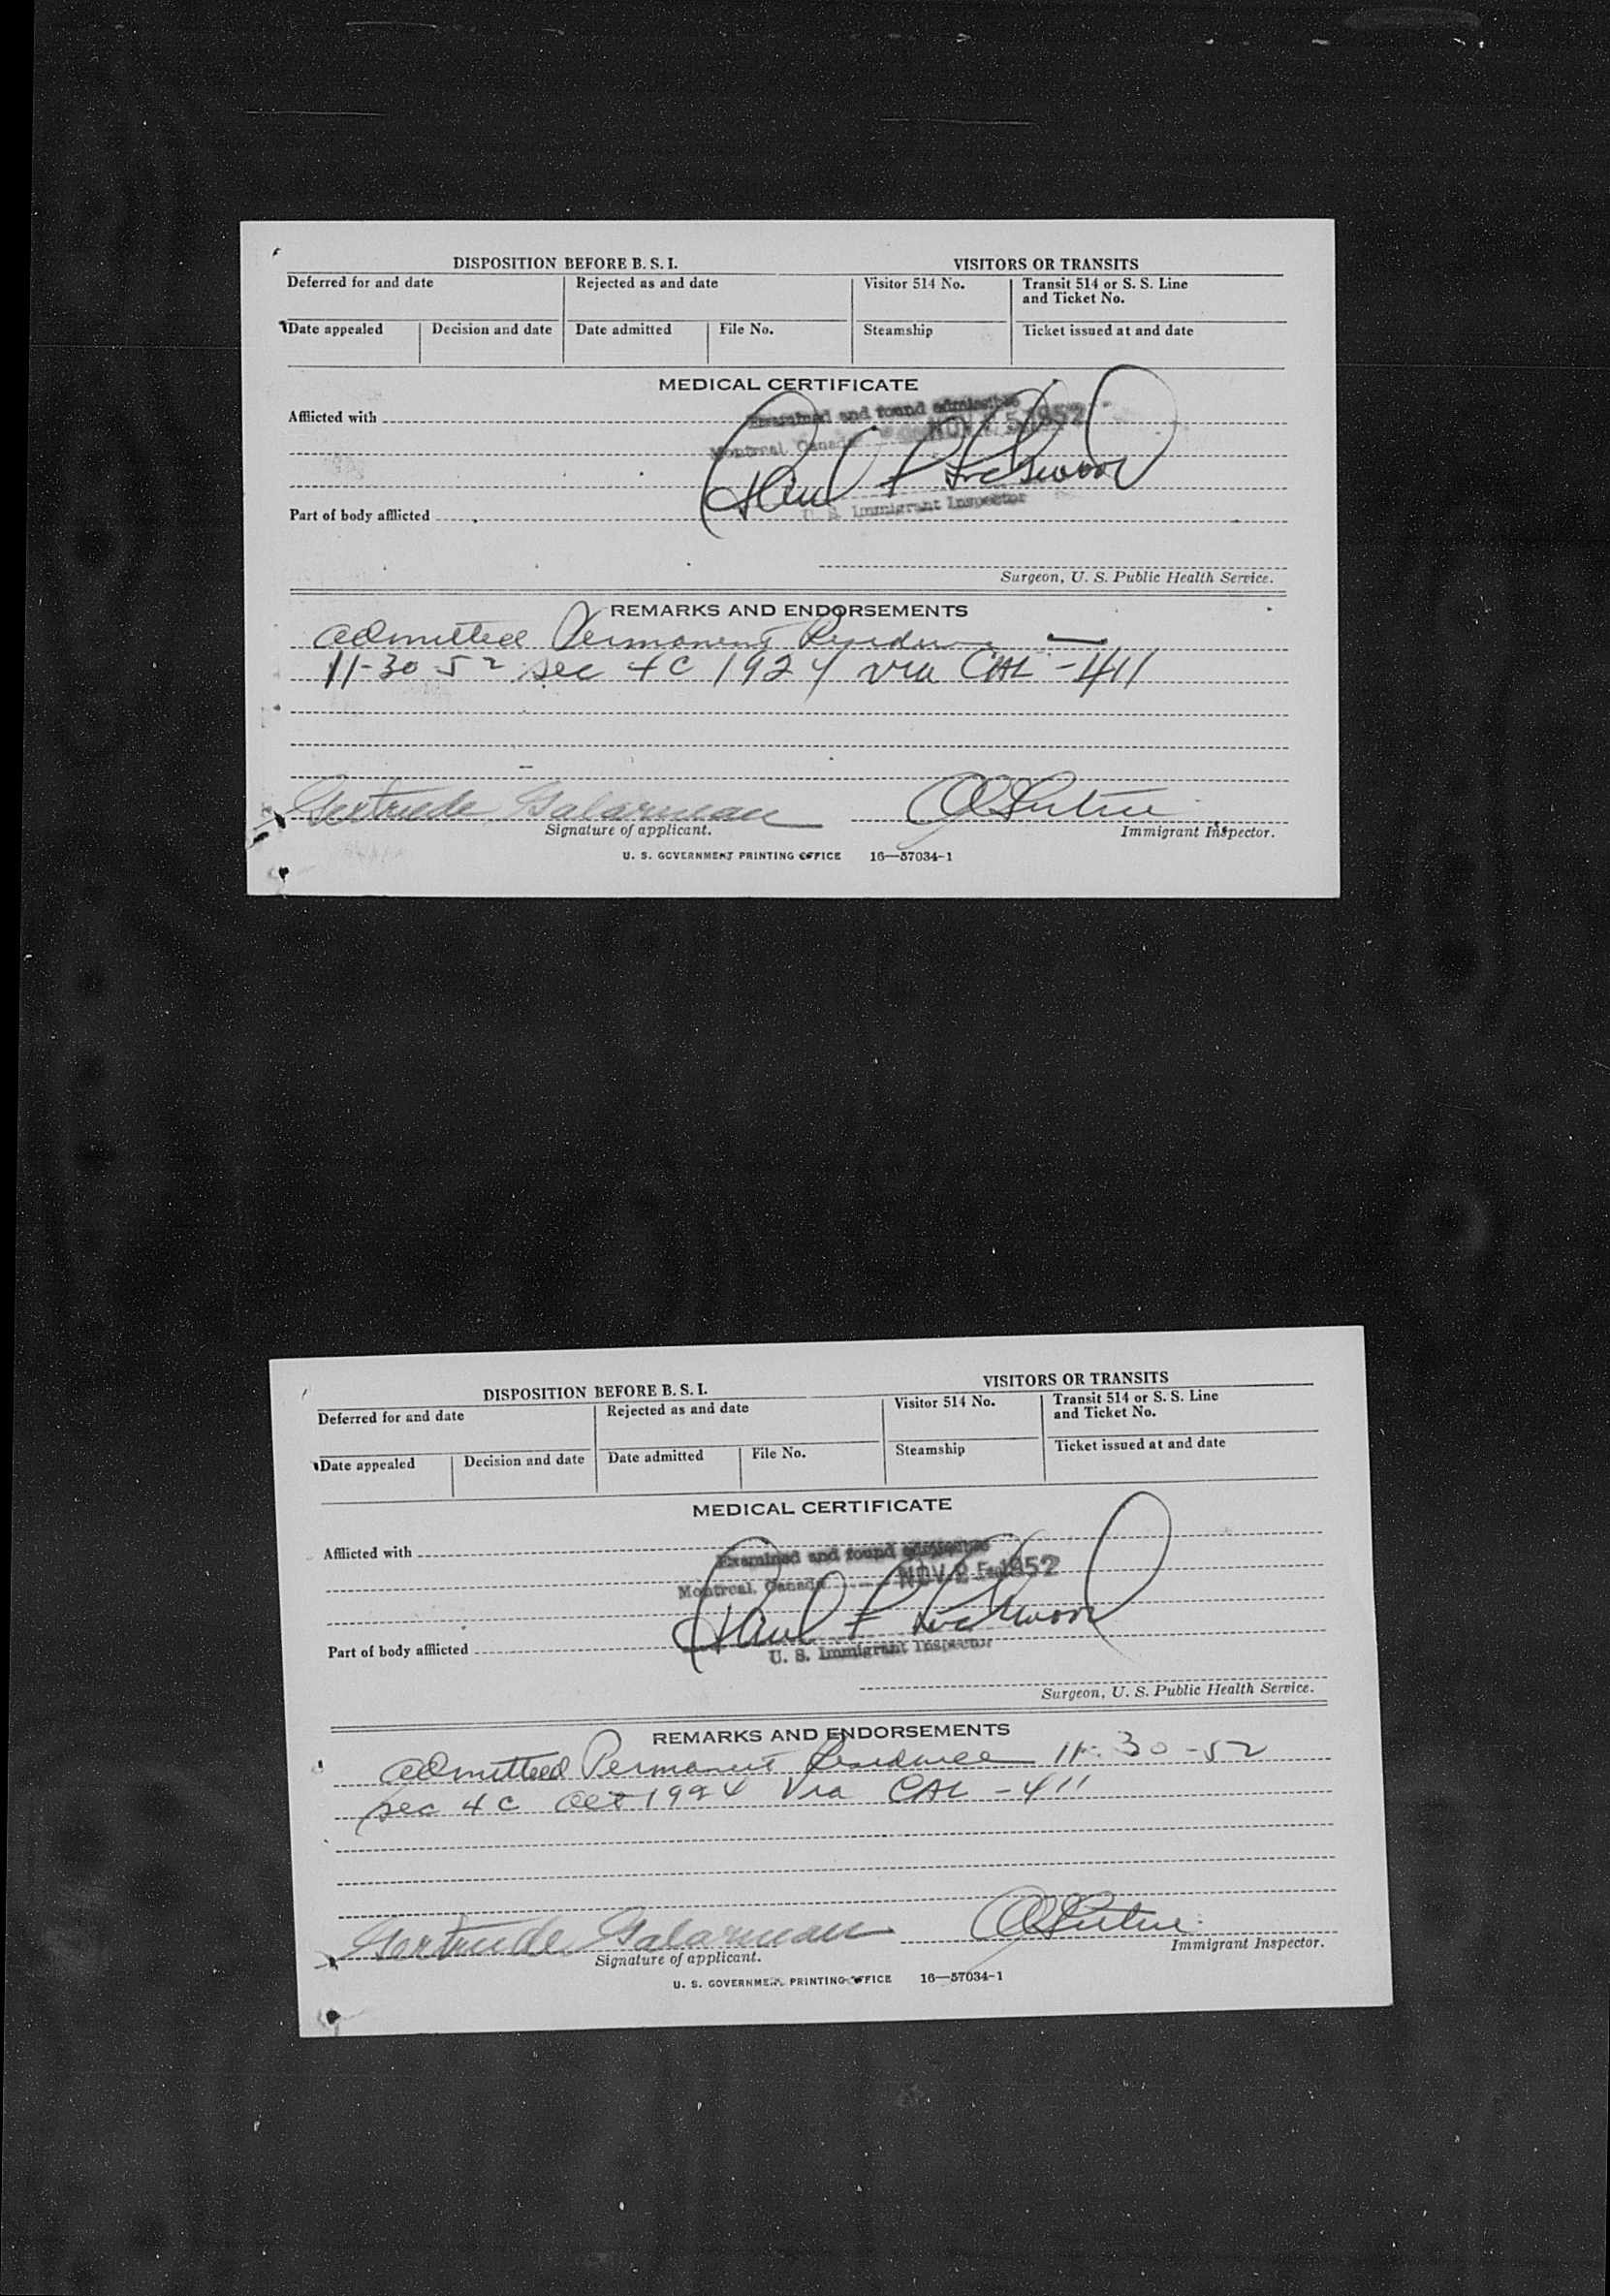 DISPOSITION BEFORE B. S. I.
VISITORS OR TRANSITS
Deferred for and date
Rejected as and date
Visitor 514 No.
Transit 514 or S. S. Line
and Ticket No.
Date appealed
Decision and date
Date admitted
File No.
Steamship
Ticket issued at and date
MEDICAL CERTIFICATE
Examined and found admissible
Afflicted with
Montreal, Canada NOV 25 1952
Paul F Lockwood
U. S. Immigrant Inspector
Part of body afflicted
Surgeon, U. S. Public Health Service.
REMARKS AND ENDORSEMENTS
admitted Permanent Residence —
11-30-52 sec 4C 1924 via CAL-411
Gertrude Galarneau
Signature of applicant.
Immigrant Inspector.
U. S. GOVERNMENT PRINTING OFFICE 16—57034-1
DISPOSITION BEFORE B. S. I.
VISITORS OR TRANSITS
Deferred for and date
Rejected as and date
Visitor 514 No.
Transit 514 or S. S. Line
and Ticket No.
Date appealed
Decision and date
Date admitted
File No.
Steamship
Ticket issued at and date
MEDICAL CERTIFICATE
Afflicted with
Examined and found admissible
Montreal, Canada NOV 25 1952
Paul F Lockwood
Part of body afflicted
U. S. Immigrant Inspector
Surgeon, U. S. Public Health Service.
REMARKS AND ENDORSEMENTS
admitted Permanent Residence 11-30-52
sec 4c act 1924 Via CAL-411
Gertrude Galarneau
Signature of applicant.
Immigrant Inspector.
U. S. GOVERNMENT PRINTING OFFICE 16—57034-1